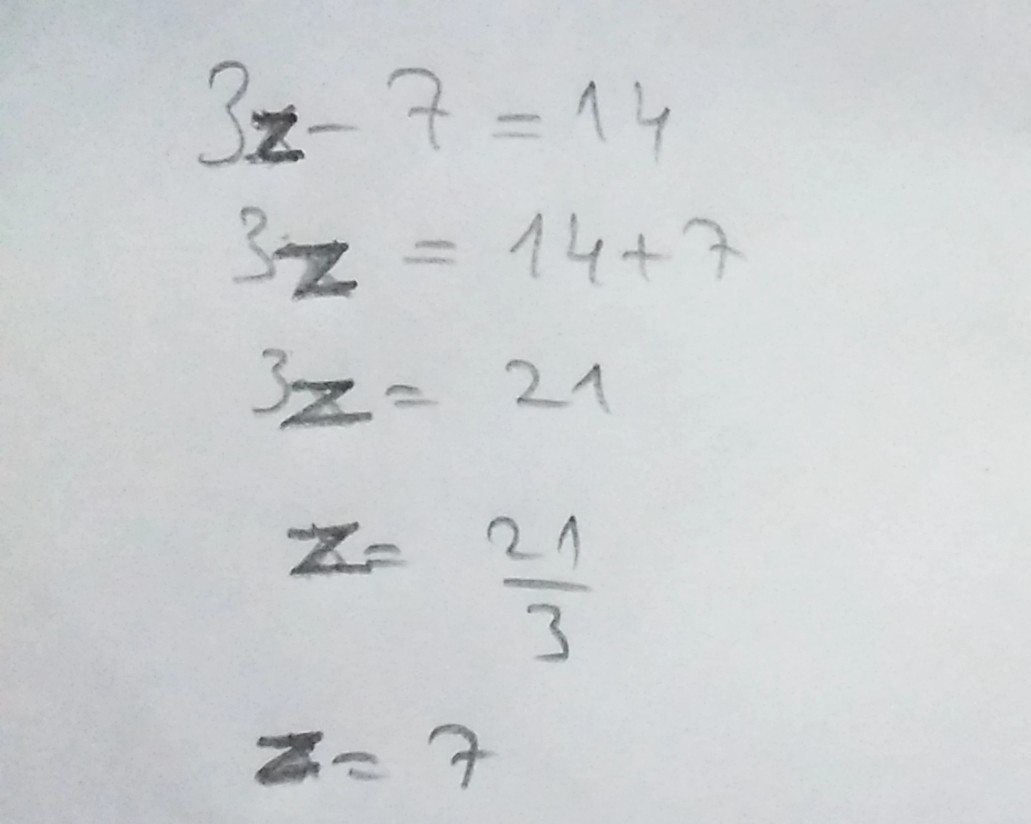 3z - 7 = 14
3z = 14 + 7
3z = 21
z = 21/3
z = 7